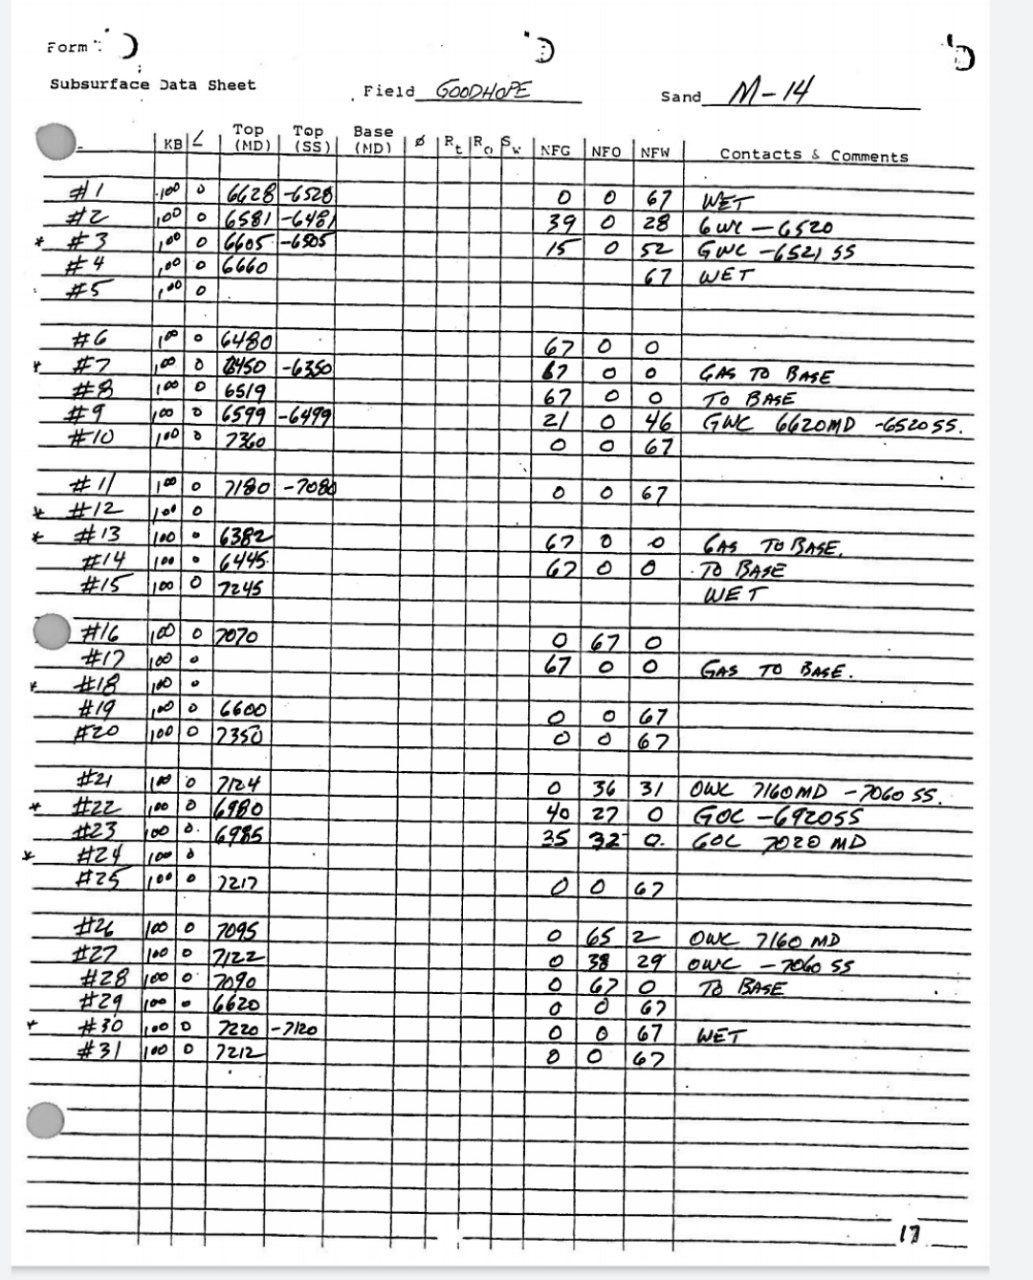 Form
Subsurface Data Sheet Field GOODHOPE Sand M-14
KB ∠ Top (MD) Top (SS) Base (MD) ø Rt Ro Sw NFG NFO NFW Contacts & Comments
#1 100 0 6628 -6528 0 0 67 WET
#2 100 0 6581 -6481 39 0 28 GWC -6520
* #3 100 0 6605 -6505 15 0 52 GWC -6521 SS
#4 100 0 6660 67 WET
#5 100 0
#6 100 0 6480 67 0 0
* #7 100 0 6450 -6350 67 0 0 GAS TO BASE
#8 100 0 6519 67 0 0 TO BASE
#9 100 0 6599 -6499 21 0 46 GWC 6620MD -6520SS.
#10 100 0 7360 0 0 67
#11 100 0 7180 -7080 0 0 67
* #12 100 0
* #13 100 0 6382 67 0 0 GAS TO BASE.
#14 100 0 6445 67 0 0 TO BASE
#15 100 0 7245 WET
#16 100 0 7070 0 67 0
#17 100 0 67 0 0 GAS TO BASE.
* #18 100 0
#19 100 0 6600 0 0 67
#20 100 0 7350 0 0 67
#21 100 0 7124 0 36 31 OWC 7160MD -7060 SS.
* #22 100 0 6980 40 27 0 GOC -6920SS
#23 100 0 6985 35 32 0 GOC 7020 MD
* #24 100 0
#25 100 0 7217 0 0 67
#26 100 0 7095 0 65 2 OWC 7160 MD
#27 100 0 7122 0 38 29 OWC -7060 SS
#28 100 0 7090 0 67 0 TO BASE
#29 100 0 6620 0 0 67
* #30 100 0 7220 -7120 0 0 67 WET
#31 100 0 7212 0 0 67
17